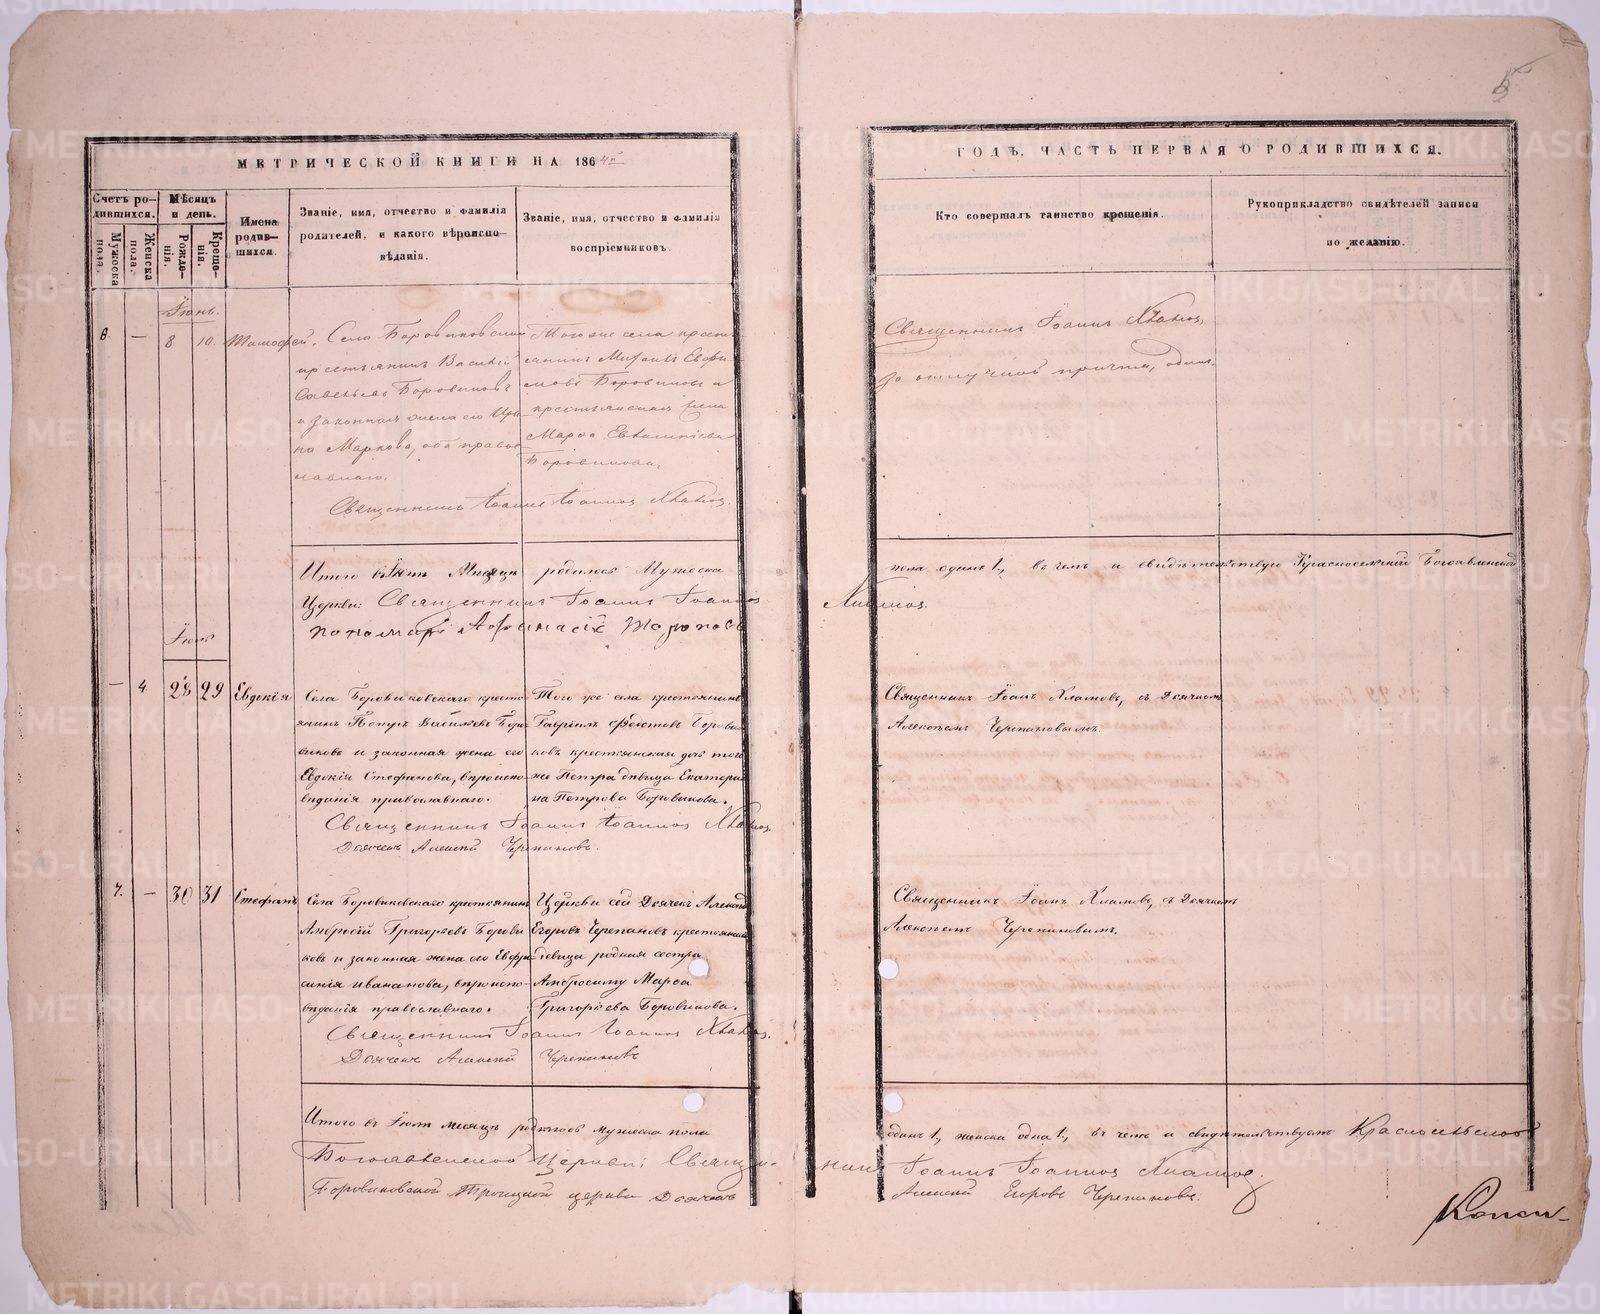 5
МЕТРИЧЕСКОЙ КНИГИ НА 1864
ГОДЪ, ЧАСТЬ ПЕРВАЯ О РОДИВШИХСЯ.
Счетъ родившихся.
Мѣсяцъ и день.
Имена родившихся.
Мужеска пола.
Женска пола.
Рожденія.
Крещенія.
Званіе, имя, отчество и фамилія
родителей, и какого вѣроиспо-
вѣданія.
Званіе, имя, отчество и фамилія
воспріемниковъ.
Кто совершалъ таинство крещенія.
Рукоприкладство свидѣтелей записи
по желанію.
Іюнь.
6. — 8 10. Тимофей.
Села Боровиковскаго
крестьянинъ Василій
Савельевъ Боровиковъ
и законная жена его Ири-
на Маркова, оба правос-
лавнаго.
Того же села крест-
ьянинъ Михаилъ Евфи-
мовъ Боровиковъ и
крестьянская жена
Марѳа
Боровикова.
Священникъ Іоаннъ Іоанновъ Хламов.
Священникъ Іоаннъ Хламов,
причта, одинъ.
Итого въ Іюнѣ Мѣсяцѣ родилось Мужеска
пола одинъ 1, въ чемъ и свидѣтельствую Красносельской Богоявленской
Церкви: Священникъ Іоаннъ Іоаннов Хламов.
пономарь Афонасій
Іюль
— 4. 28 29 Евдокія
Села Боровиковскаго кресть-
янинъ Петръ Васильевъ Боро-
виковъ и законная жена его
Евдокія Стефанова, вѣроиспо-
вѣданія православнаго.
Того же села крестьянинъ
Гавріилъ Боровиковъ
крестьянская дочь того
же Петра дѣвица Екатери-
на Петрова Боровикова.
Священникъ Іоаннъ Іоаннов Хламов.
Дьячекъ Алексѣй Черепановъ.
Священникъ Іоаннъ Хламовъ, съ Дьячкомъ
Алексѣемъ Черепановымъ.
7. — 30 31 Стефанъ
Села Боровиковскаго крестьянинъ
Амбросій Григорьевъ Борови-
ковъ и законная жена его Евфро-
синія Иванова, вѣроиспо-
вѣданія православнаго.
Церкви сей Дьячекъ Алексѣй
Егоровъ Черепановъ крестьянская
дѣвица родная сестра
Амбросиму Марѳа
Григорьева Боровикова.
Священникъ Іоаннъ Іоаннов Хламов.
Дьячекъ Алексѣй Черепановъ
Священникъ Іоаннъ Хламовъ, съ Дьячкомъ
Алексѣемъ Черепановымъ.
Итого въ Іюлѣ месяцѣ родилось мужеска пола
одинъ 1, женска одна 1, въ чемъ и свидѣтельствуемъ Красносельской
Богоявленской Церкви: Священникъ Іоаннъ Іоаннов Хламов.
Боровиковской Троицкой церкви Дьячекъ Алексѣй Егоровъ Черепановъ.
METRIKI.GASO-URAL.RU